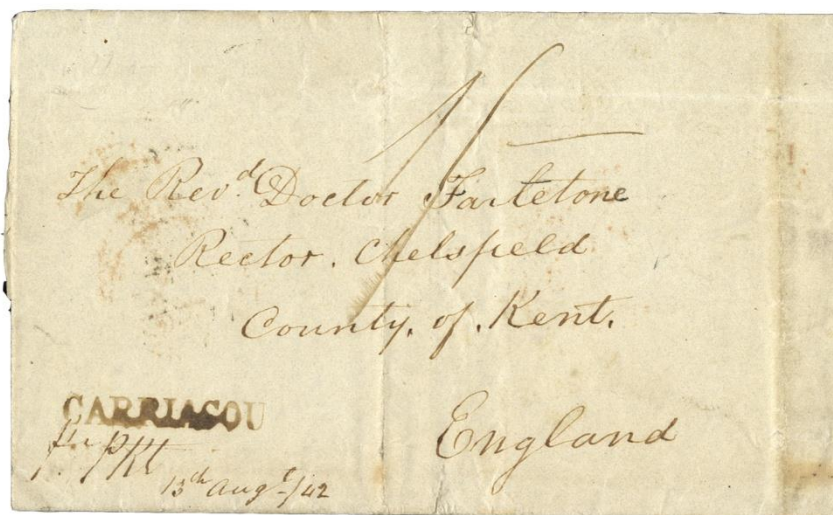 1/-
The Revd. Doctor Tarletone
Rector. Chelsfield
County. of. Kent.
England
CARRIACOU
pr. pkt
13th Augt/42